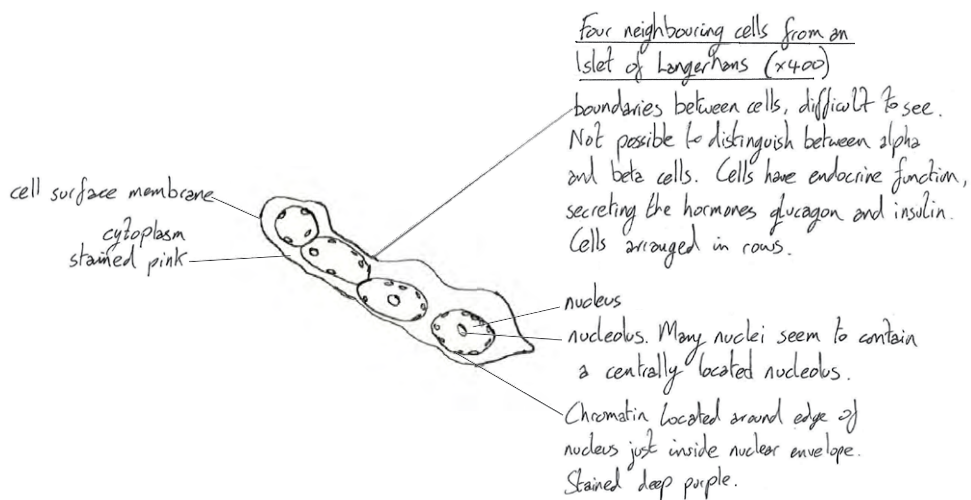 Four neighbouring cells from an
Islet of Langerhans (×400)
boundaries between cells, difficult to see.
Not possible to distinguish between alpha
and beta cells. Cells have endocrine function,
secreting the hormones glucagon and insulin.
Cells arranged in rows.
cell surface membrane
cytoplasm
stained pink
nucleus
nucleolus. Many nuclei seem to contain
a centrally located nucleolus.
Chromatin located around edge of
nucleus just inside nuclear envelope.
Stained deep purple.